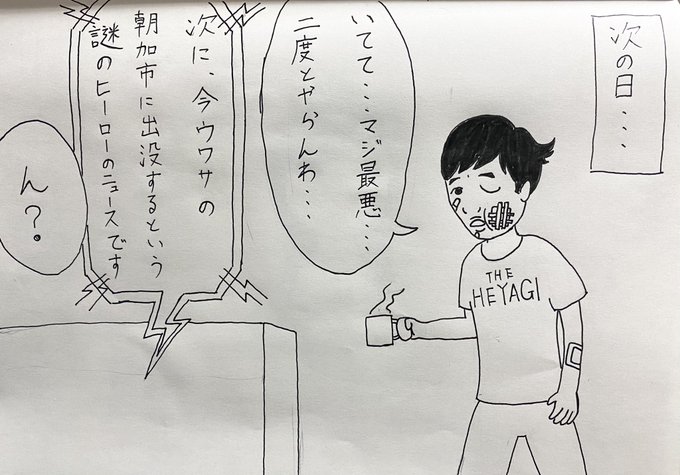 次の日・・・
いてて・・・マジ最悪・・・
二度とやらんわ・・・
THE
HEYAGI
次に、今ウワサの
朝加市に出没するという
謎のヒーローのニュースです
ん?